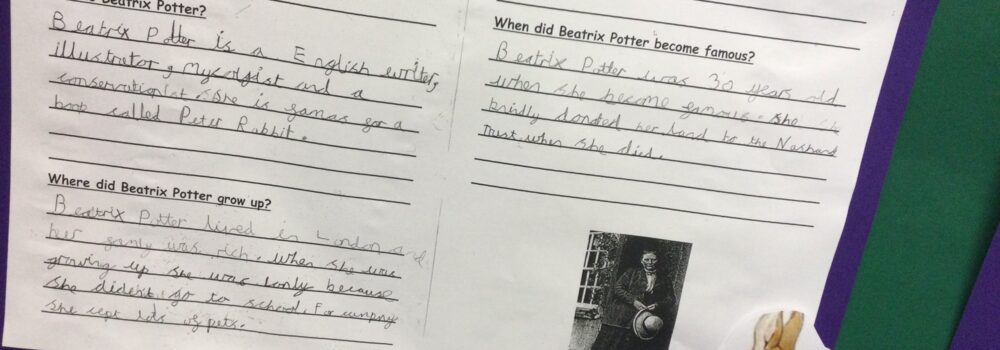 Beatrix Potter?
Beatrix Potter is a English writer,
illustrator, Mycolgist and a
conservationist. She is famas for a
book called Peter Rabbit.
Where did Beatrix Potter grow up?
Beatrix Potter lived in London and
her famly was rich. when she was
growing up she was lonly because
She didest go to school. For
she cept lots of pets.
When did Beatrix Potter become famous?
Beatrix Potter was 30 years old
when she become famous. She
kindly donded her land to the
Trust when she died.